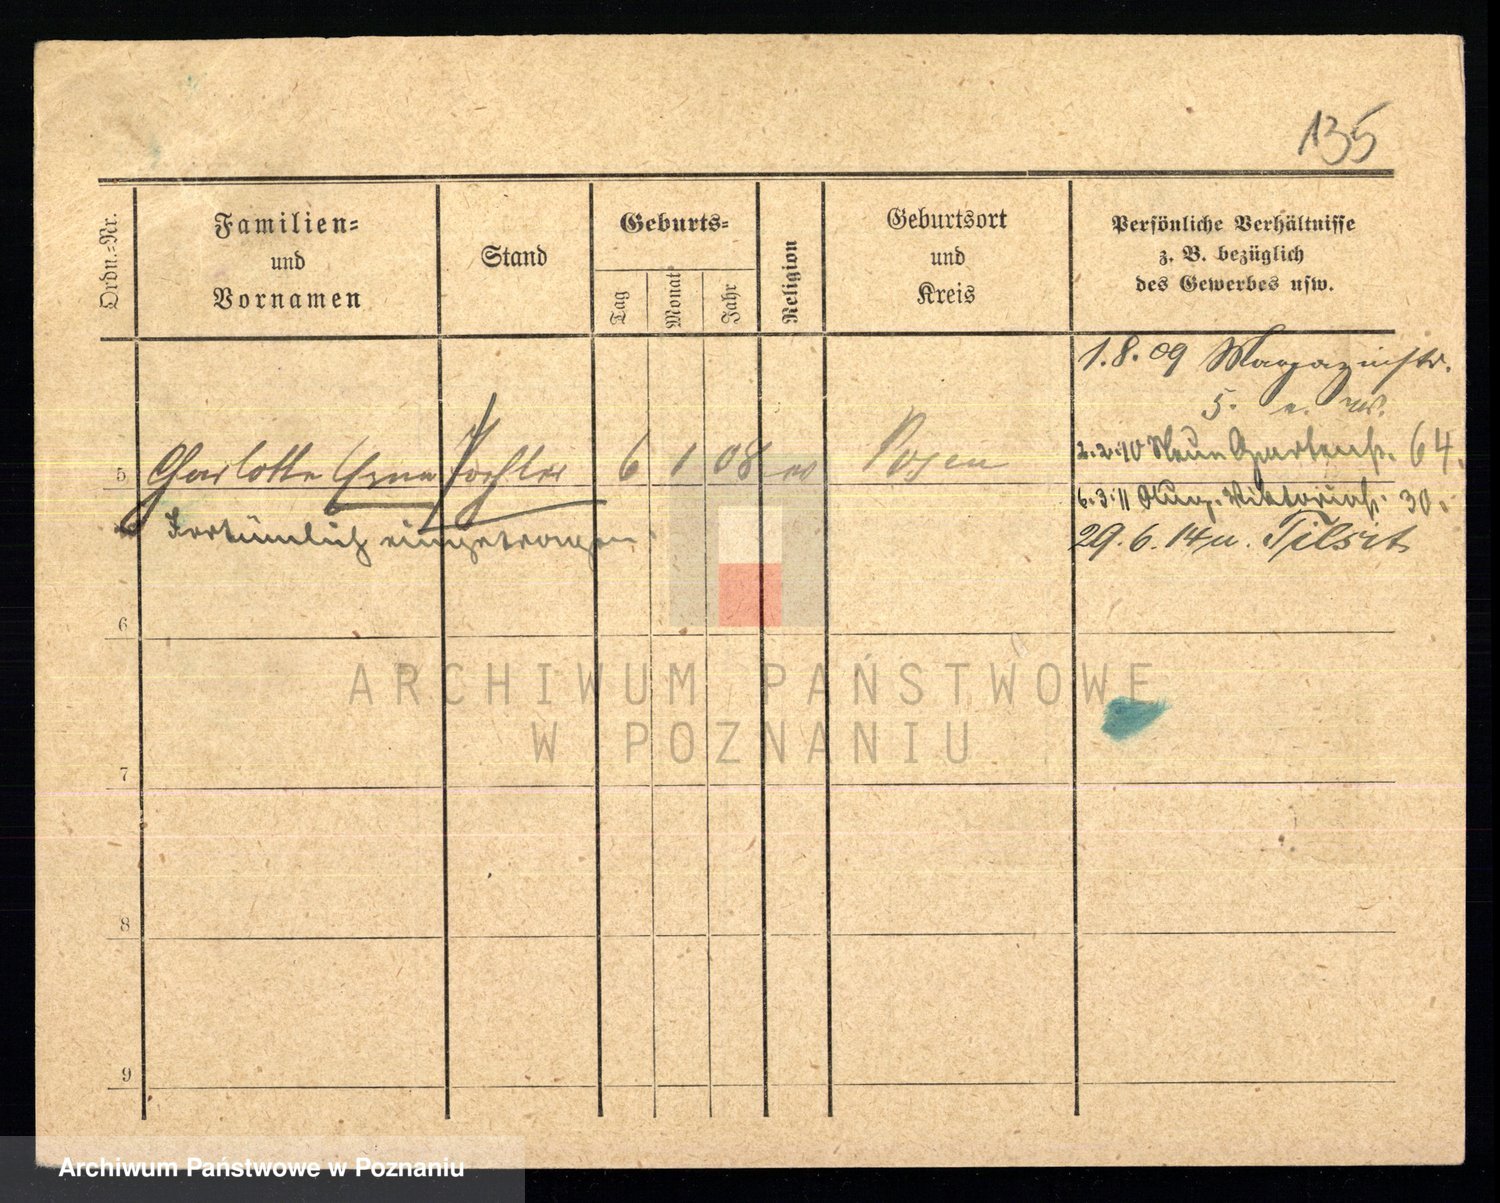 135
Ordn.-Nr.
Familien-
und
Vornamen
Stand
Geburts-
Tag
Monat
Jahr
Religion
Geburtsort
und
Kreis
Persönliche Verhältnisse
z. B. bezüglich
des Gewerbes usw.
1.8.09 Magazinstr.
5.
5 Charlotte Erna Tochter 6 1 08 ev Posen
2.2.10 Neue Gartenstr. 64.
6.3.11 Aug. Viktoriastr. 30.
Irrtümlich eingetragen.
29.6.14 n. Tilsit
6
7
8
9
ARCHIWUM PAŃSTWOWE
W POZNANIU
Archiwum Państwowe w Poznaniu